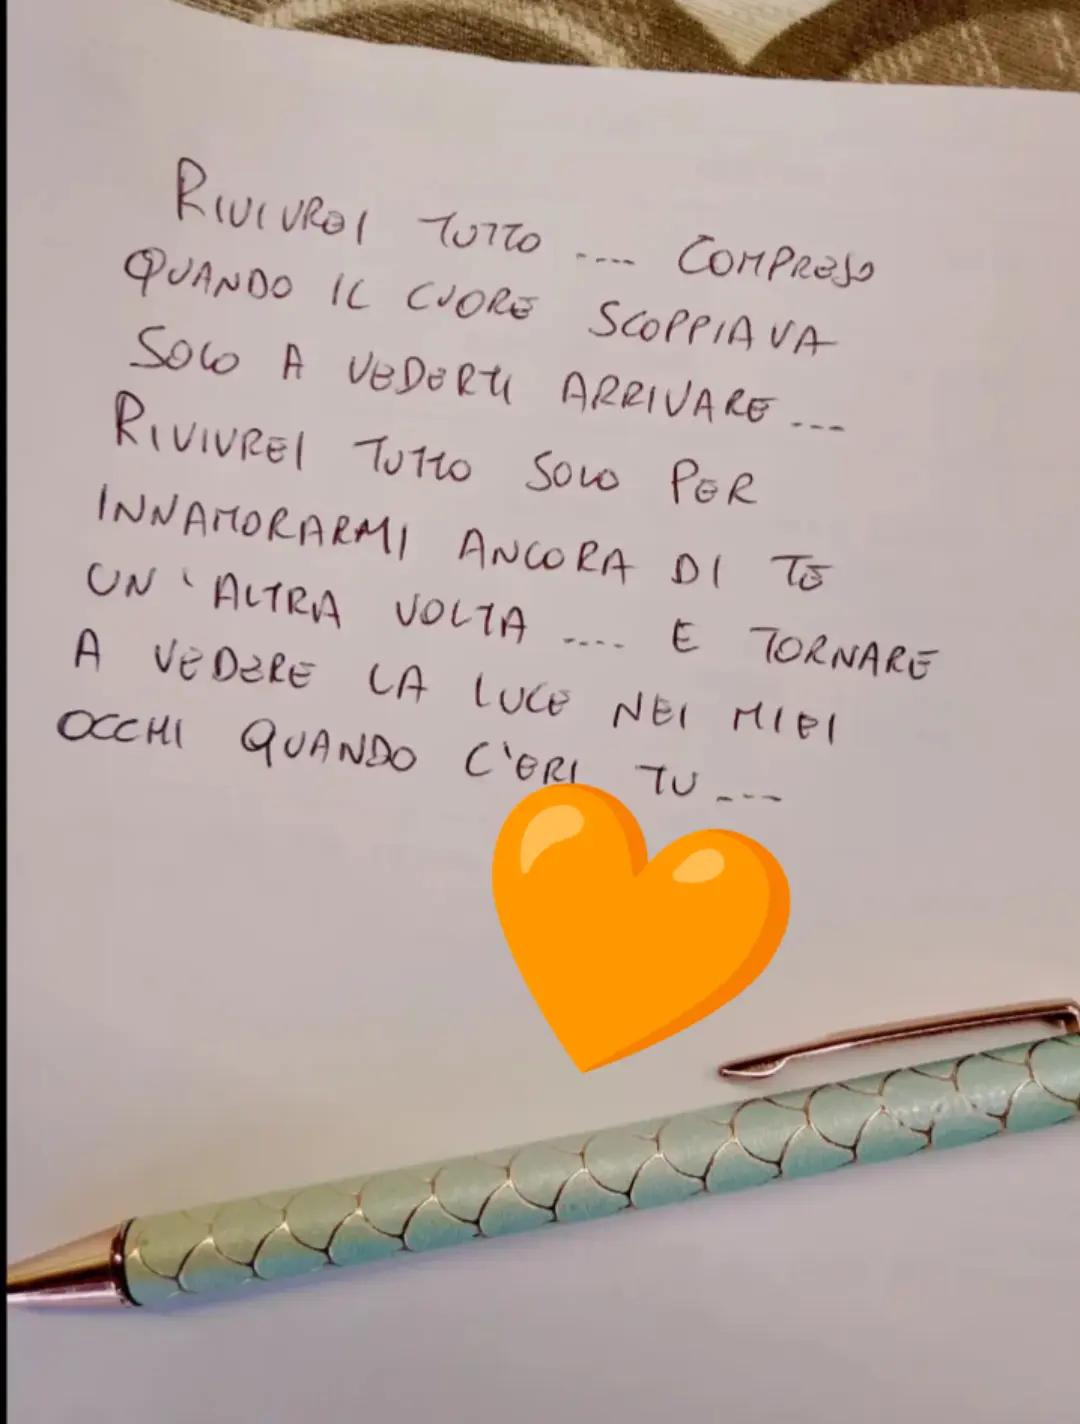 RIVIVREI TUTTO .... COMPRESO
QUANDO IL CUORE SCOPPIAVA
SOLO A VEDERTI ARRIVARE ...
RIVIVREI TUTTO SOLO PER
INNAMORARMI ANCORA DI TE
UN'ALTRA VOLTA .... E TORNARE
A VEDERE LA LUCE NEI MIEI
OCCHI QUANDO C'ERI TU ...